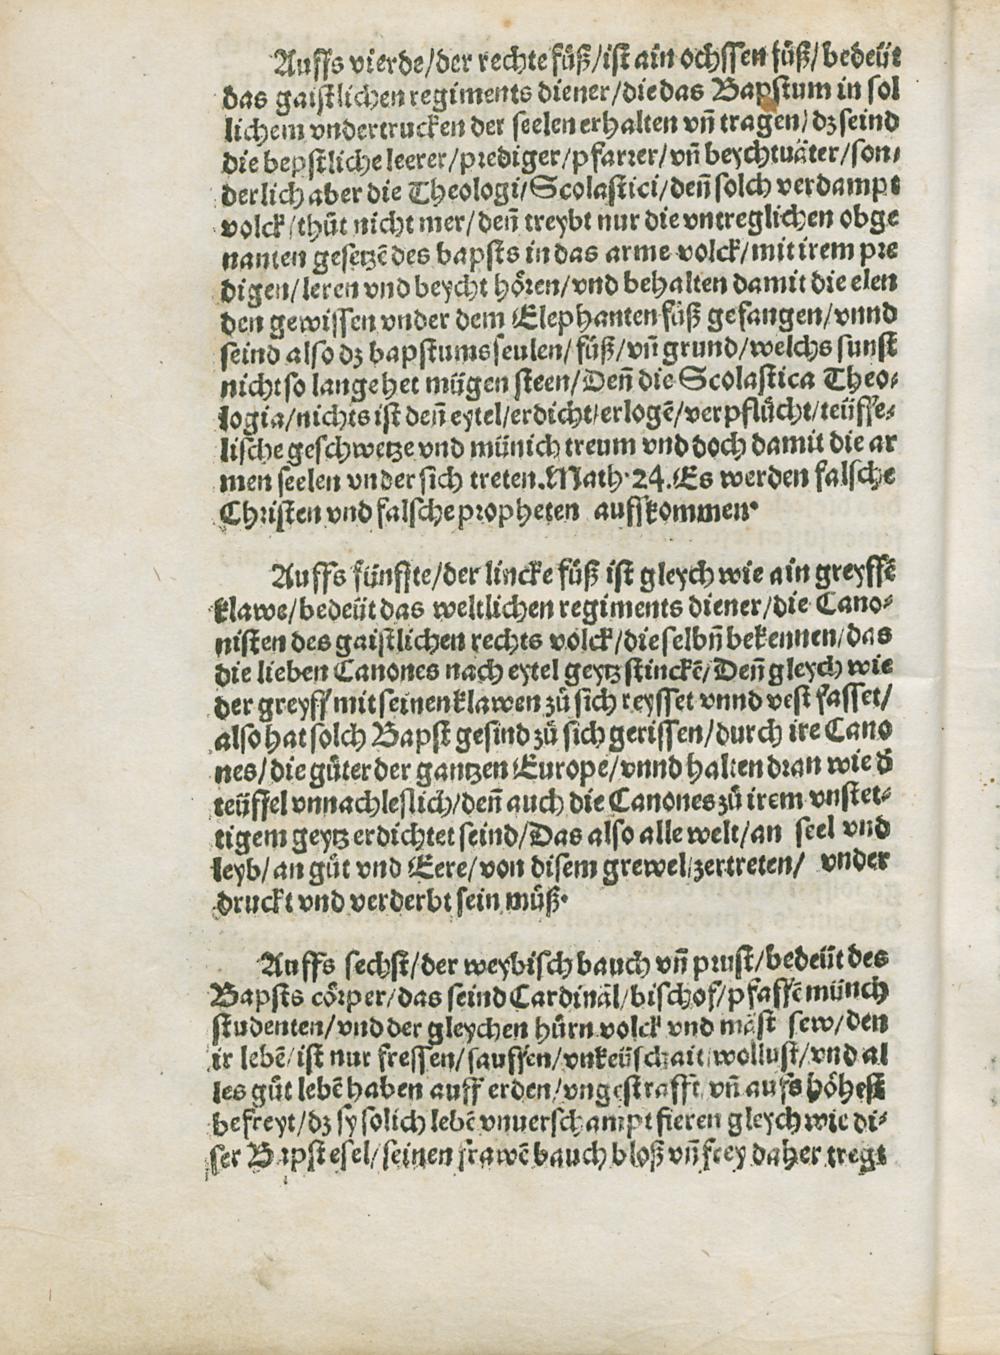 Auffs vierde/der rechte fůß/ist ain ochssen fůß/bedeüt
das gaistlichen regiments diener/die das Bapstum in sol
lichem vndertrucken der seelen erhalten vn̄ tragen/dz seind
die bepstliche leerer/prediger/pfarrer/vn̄ beychtuäter/son⸗
derlich aber die Theologi/Scolastici/den̄ solch verdampt
volck/thůt nicht mer/den̄ treybt nur die vntreglichen obge
nanten gesetzē des bapsts in das arme volck/mit irem pre
digen/leren vnd beycht hören/vnd behalten damit die elen
den gewissen vnder dem Elephanten fůß gefangen/vnnd
seind also dz bapstums seulen/fůß/vn̄ grund/welchs sunst
nicht so lange het mügen steen/Den̄ die Scolastica Theo⸗
logia/nichts ist den̄ eytel/erdicht/erlogē/verpflůcht/teüffe⸗
lische geschwetze vnd münich treum vnd doch damit die ar
men seelen vnder sich treten.Math.24.Es werden falsche
Christen vnd falsche propheten auffkommen.

Auffs fünffte/der lincke fůß ist gleych wie ain greyffē
klawe/bedeüt das weltlichen regiments diener/die Cano⸗
nisten des gaistlichen rechts volck/die selbn̄ bekennen/das
die lieben Canones nach eytel geytz stinckē/Den̄ gleych wie
der greyff mit seinen klawen zů sich reysset vnnd vest fasset/
also hat solch Bapst gesind zů sich gerissen/durch ire Cano
nes/die güter der gantzen Europe/vnnd halten dran wie d̄
teüffel vnnachleslich/den̄ auch die Canones zů irem vnstet⸗
tigem geytz erdichtet seind/Das also alle welt/an seel vnd
leyb/an gůt vnd Eere/von disem grewel/zertreten/ vnder
druckt vnd verderbt sein můß.

Auffs sechst/der weybisch bauch vn̄ prust/bedeüt des
Bapsts cörper/das seind Cardinäl/bischof/pfaffē münch
studenten/vnd der gleychen hůrn volck vnd mäst sew/den
ir lebē/ist nur fressen/sauffen/vnkeüschait/wollust/vnd al
les gůt lebē haben auff erden/vngestrafft vn̄ aufs höhest
befreyt/dz sy solich lebē vnuerschampt fieren gleych wie di⸗
ser Bapst esel/seinen frawē bauch bloß vn̄ frey daher tregt